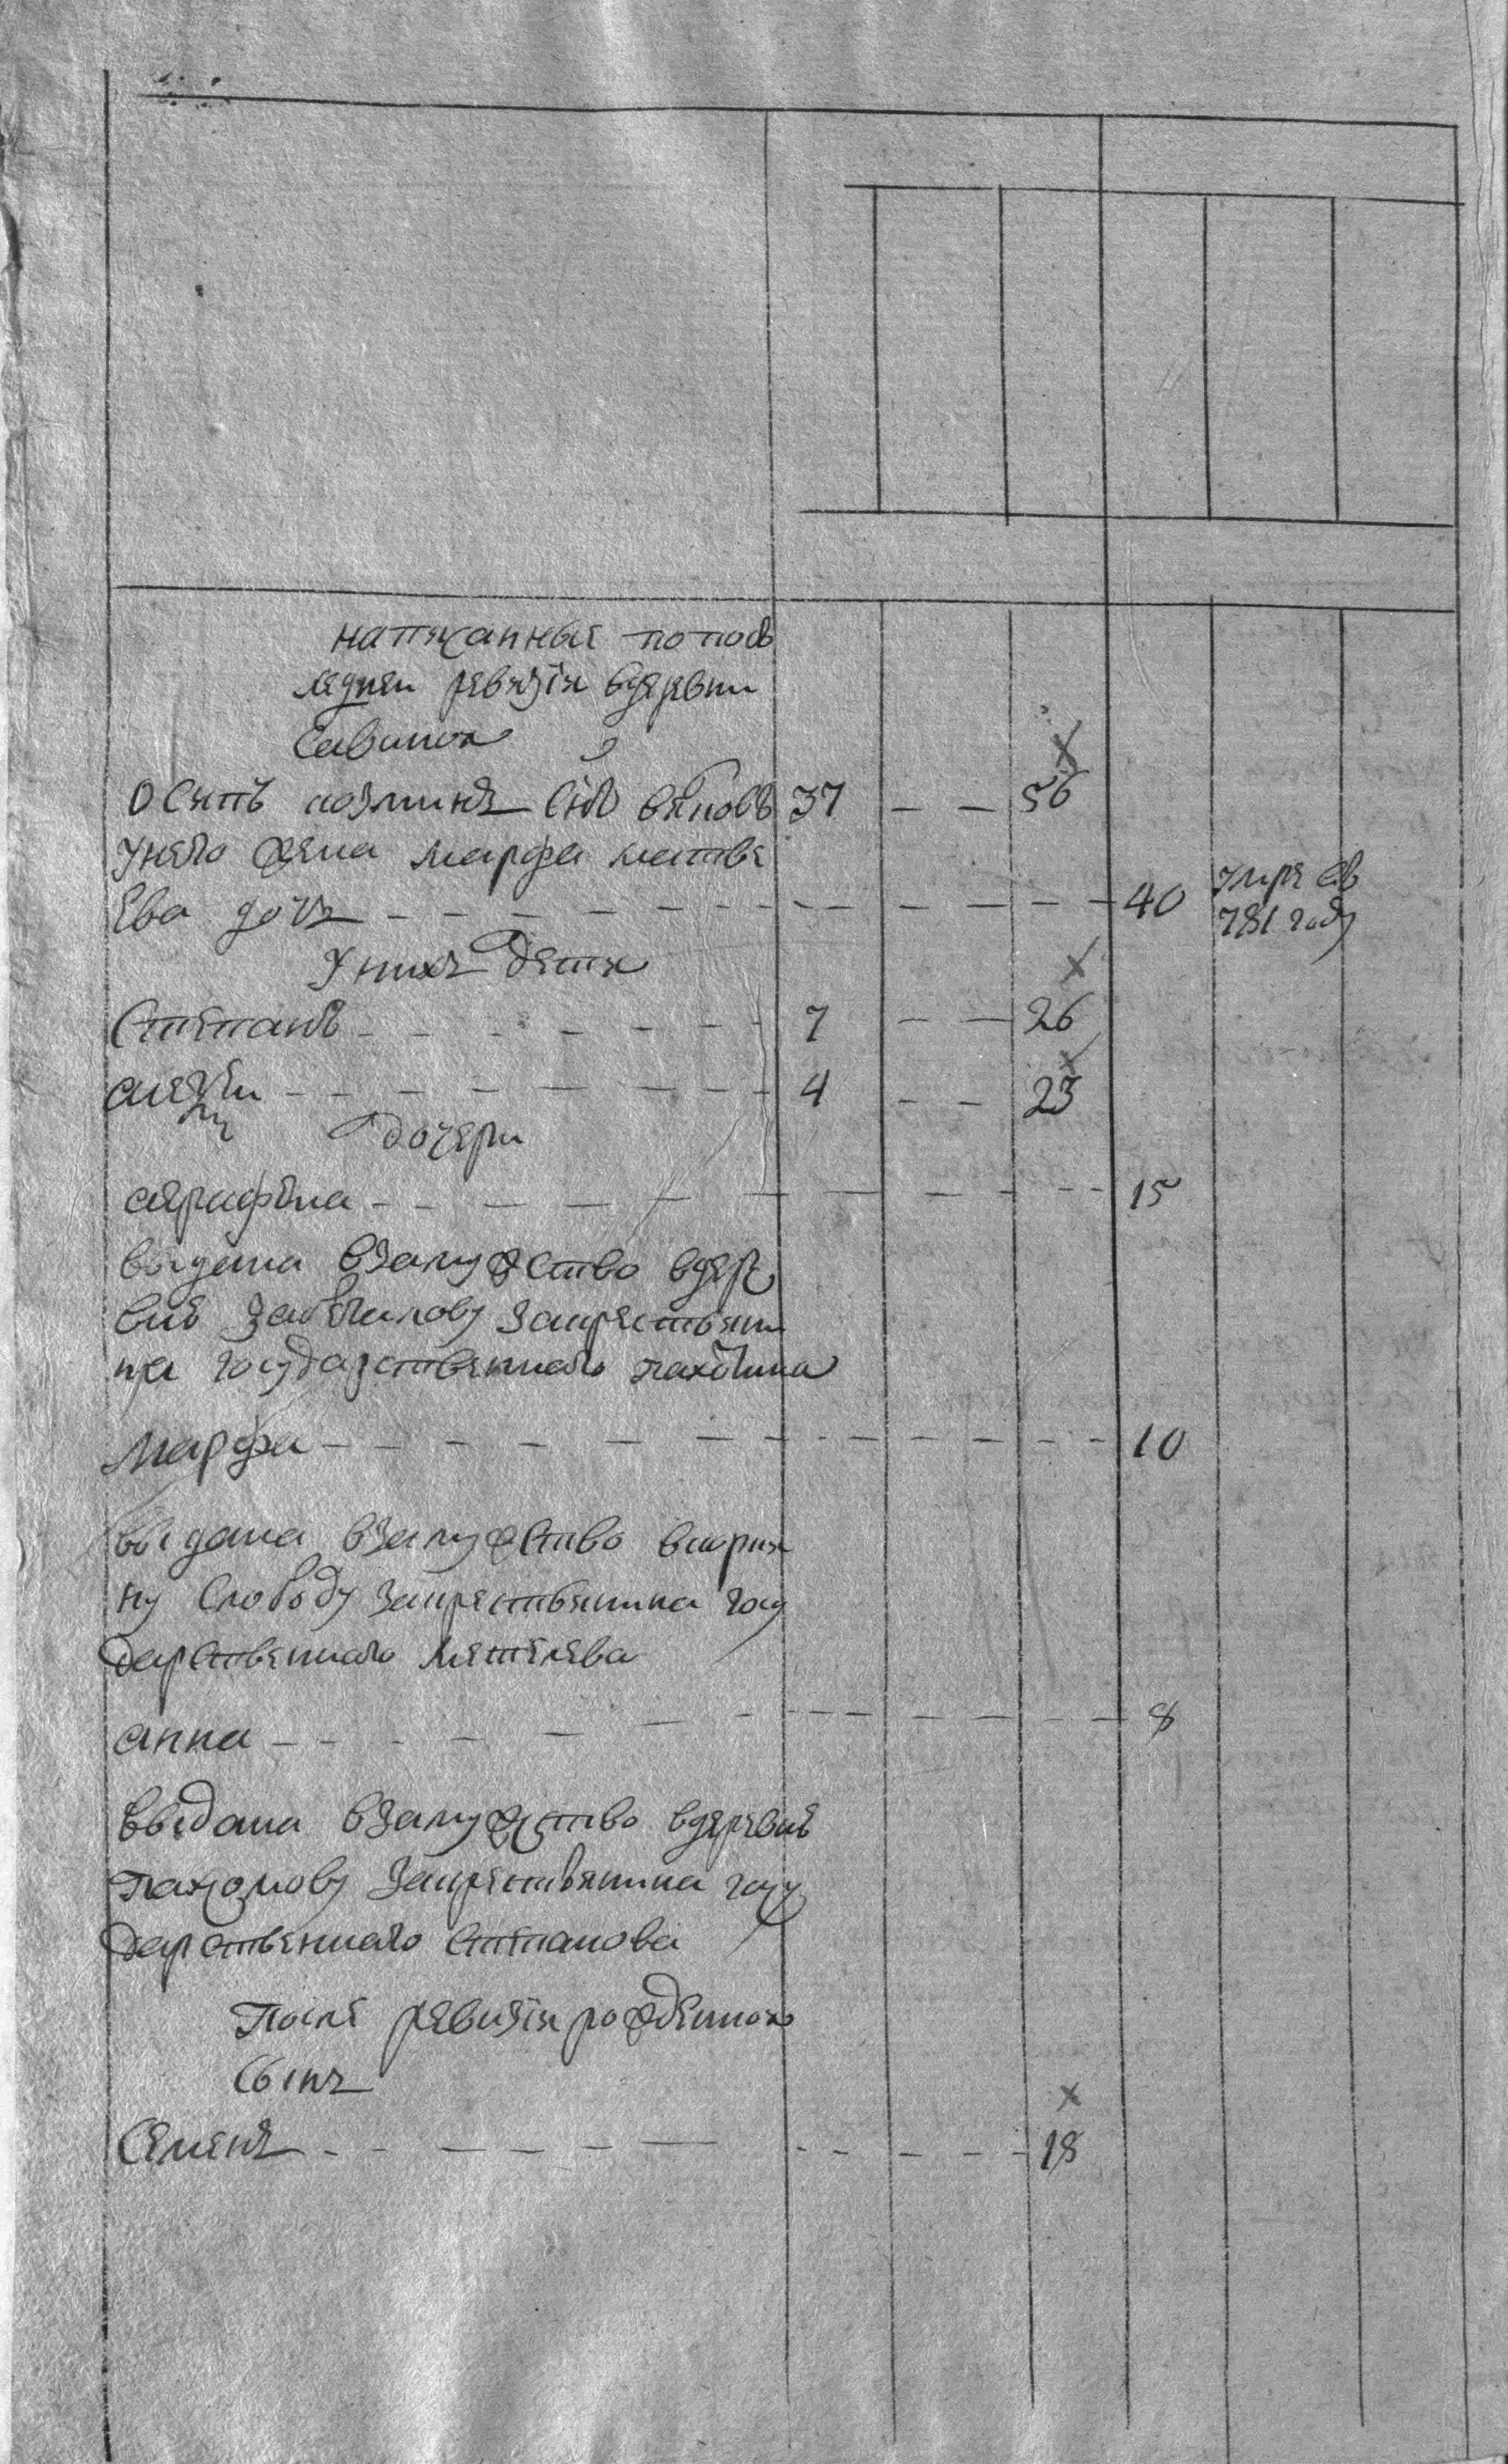 написанныя по посл
ледней ревизiи в деревни
Савиной
Осипъ козминъ сынъ вяновъ 37 — — 56
у него жена марфа матве
ева дочь — — — 40 умре въ
781 году
у нихъ дети
Степанъ — — — 7 — — 26
алексѣи — — — 4 — — 23
дочери
серафѣма — — — 15
выдана взамужство в дере
внѣ за крестьяни
на государственного пахомина
Марфа — — — 10
выдана взамужство
ну слободу за крестьянина госу
дарственнаго метелева
анна — — — 8
выдана взамужство в деревнѣ
пахомову за крестьянина госу
дарственного степанова
после ревизiи рожденной
сынъ
Семенъ — — — 18